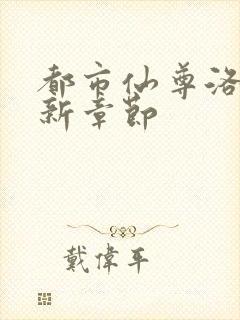 都市仙尊洛
新章節
戴偉年